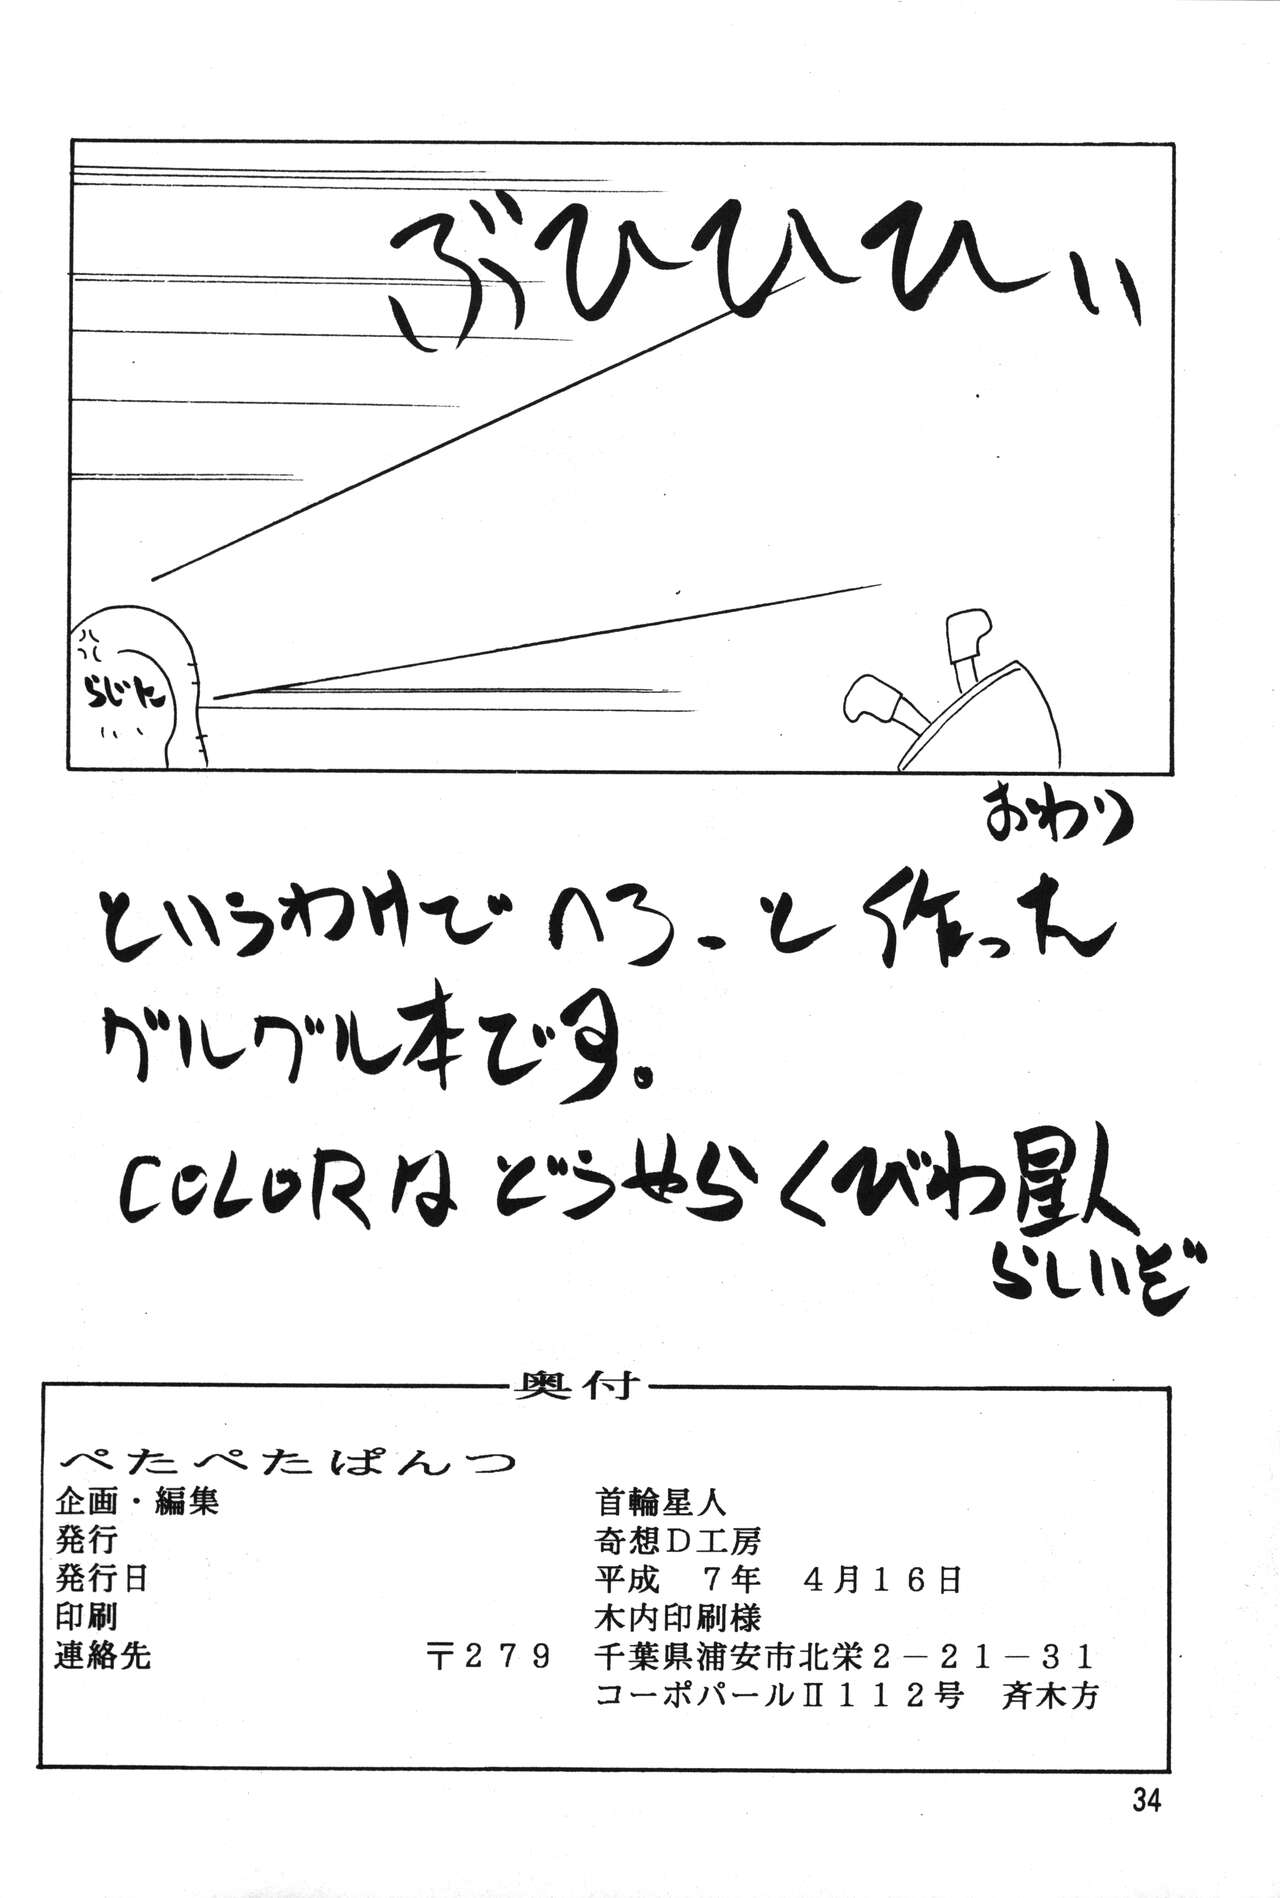 ぶひひひぃぃ
らじた
おわり
というわけでへろーと作った
グルグル本です。
COLORはどうやらくびわ星人
らしいぞ
奥付
ぺたぺたぱんつ
企画・編集 首輪星人
発行 奇想D工房
発行日 平成 7年 4月16日
印刷 木内印刷様
連絡先 〒279 千葉県浦安市北栄2-21-31
コーポパールⅡ112号 斉木方
34